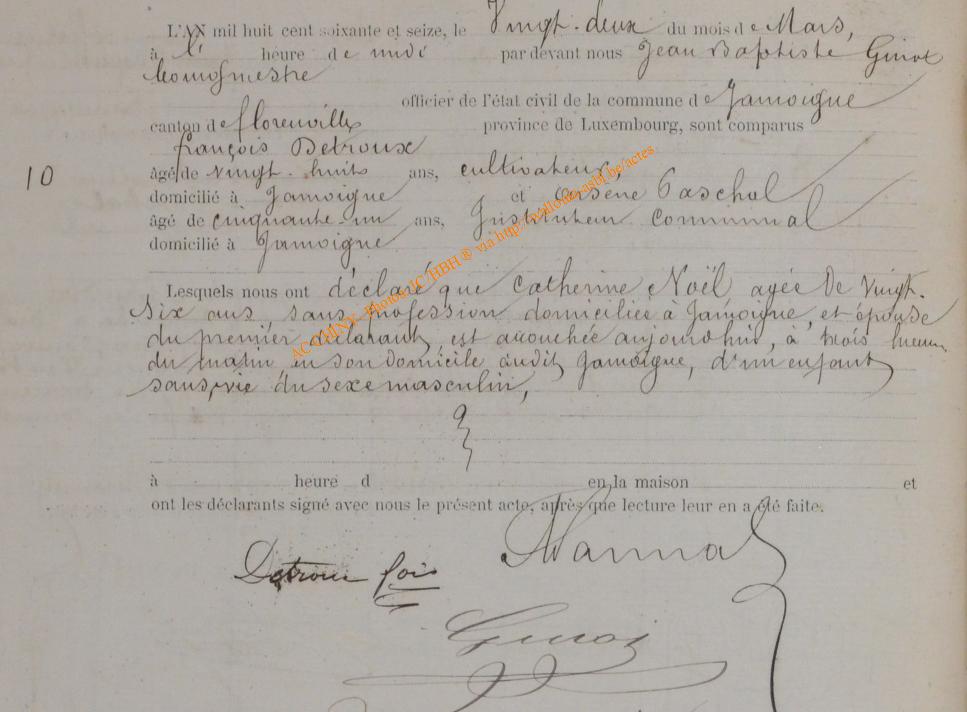 L'AN mil huit cent soixante et seize, le Vingt-deux du mois de Mars,
à l' heure de midi par devant nous Jean Baptiste Ginot
bourgmestre
officier de l'état civil de la commune de Jamoigne
canton de florenville province de Luxembourg, sont comparus
françois Detroux
10
âgé de vingt-huit ans, cultivateur,
domicilié à Jamoigne et Arsène Paschal
âgé de cinquante un ans, Instituteur Communal
domicilié à Jamoigne
Lesquels nous ont déclaré que Catherine Noël agée de vingt-
six ans, sans profession, domiciliée à Jamoigne, et épouse
du premier déclarant, est accouchée aujourd'hui, à trois heures
du matin en son domicile audit Jamoigne, d'un enfant
sans vie du sexe masculin,
à heure d en la maison et
ont les déclarants signé avec nous le présent acte, après que lecture leur en a été faite.
Detroux fois
Ginot
AC CHINY - Photos IC/HBH ® via http://wallonia.asbl.be/actes